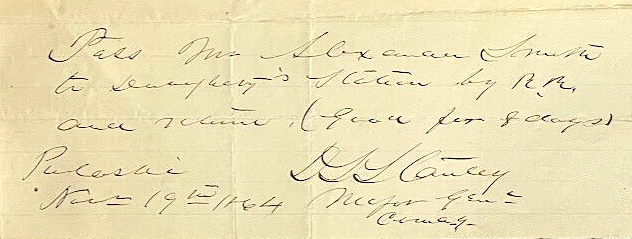 Pass Mr Alexander Smith
to Daugherty's Station by R.R.
and return. (Good for 8 days)
Pulaski D S Stanley
Nov 19th /864 Major Genl
Comdg